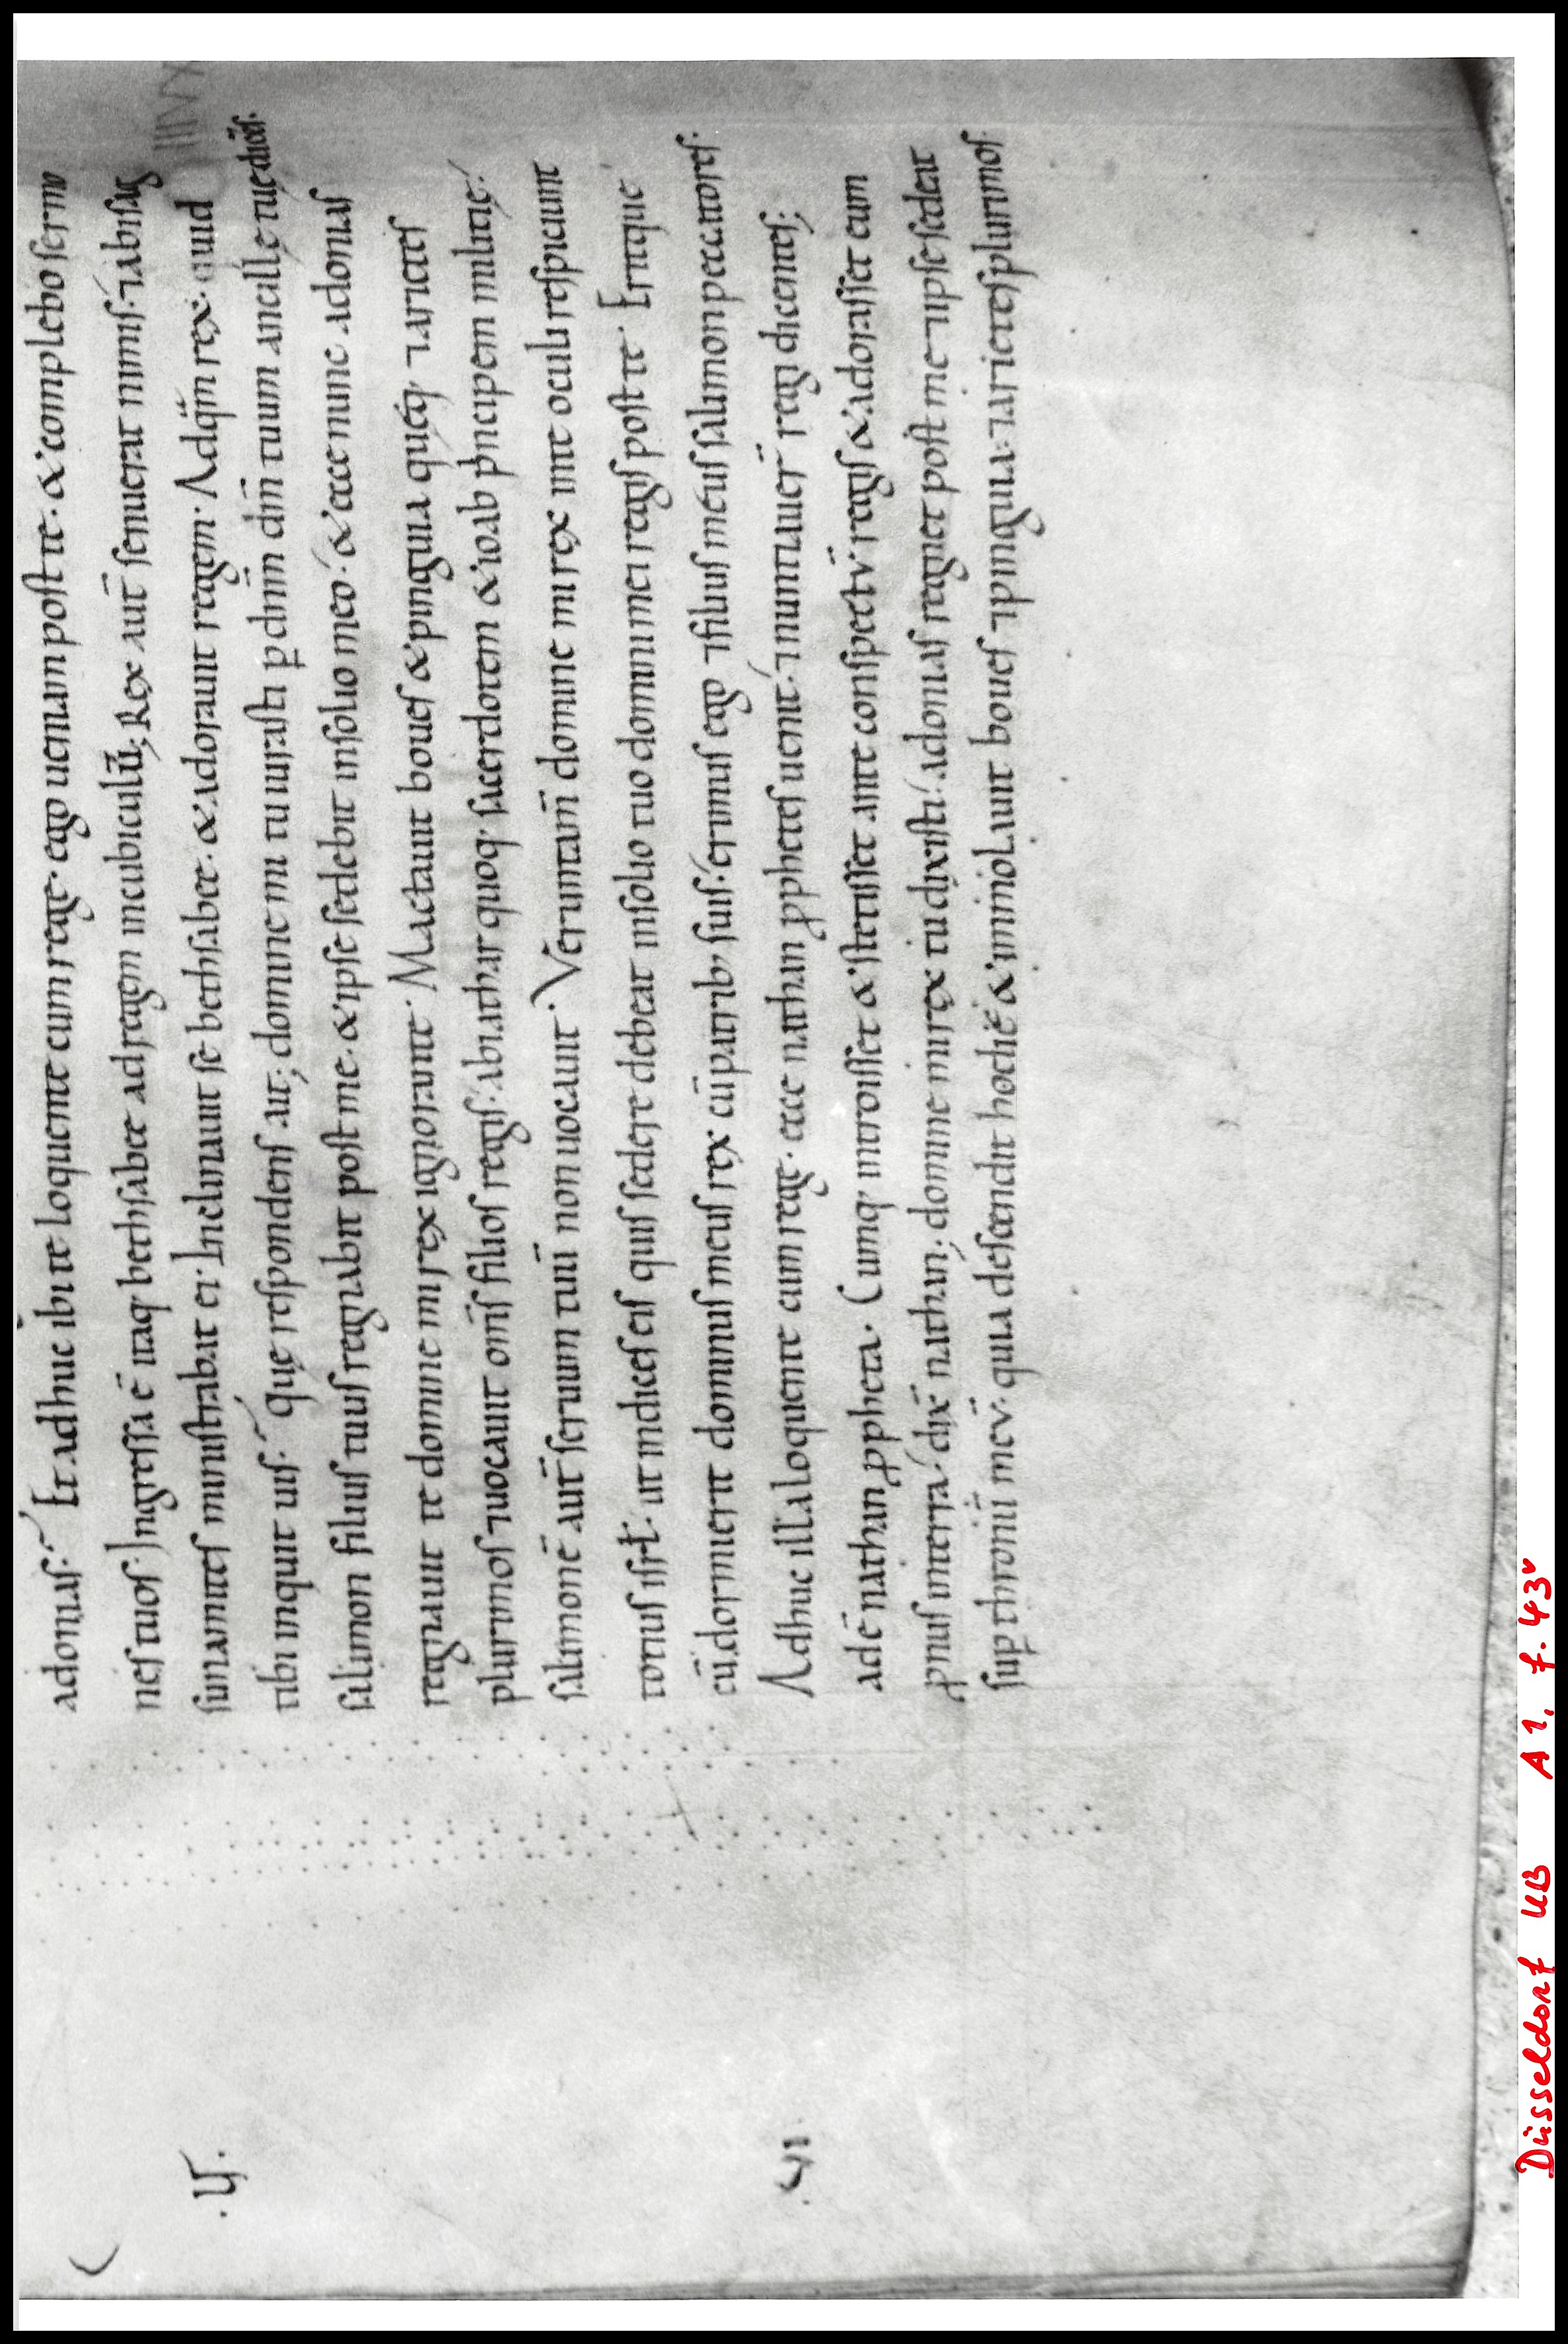 adonias. Et adhuc ibi te loquente cum rege. ego ueniam post te. & complebo sermo
nes tuos. Ingressa ē itaq; bethsabee ad regem in cubiculū; Rex aut̄ senuerat nimis. ⁊ abisag
sunamites ministrabat ei. Inclinauit se bethsabee. & adorauit regem. Ad quē rex. quid
tibi inquit uis. Quę respondens ait; domine mi tu iurasti ꝑ dnm̄ dm̄ tuum ancillę tuę dicēs.
salimon filius tuus regnabit post me. & ipse sedebit in solio meo. & ecce nunc adonias
regnauit te domine mi rex ignorante. Mactauit boues & pinguia quęq; ⁊ arietes
plurimos ⁊ uocauit om̄s filios regis. abiathar quoq; sacerdotem & ioab pͥncipem militię.
salimonē aut̄ seruum tuū non uocauit. Verumtam̄ domine mi rex in te oculi respiciunt
totius isrł. ut indices eis quis sedere debeat in solio tuo domini mei regis post te. Eritque
cū dormierit dominus meus rex cū patrib; suis. erimus ego ⁊ filius meus salimon peccatores.
Adhuc illa loquente cum rege. ecce nathan ꝓphetes uenit. ⁊ nuntiauer̄ regi dicentes;
adē nathan ꝓpheta. Cumq; introisset & stetisset ante conspectū regis & adorasset eum
ꝓnus in terra. dix̄ nathan; domine mi rex tu dixisti. adonias regnet post me ⁊ ipse sedeat
suꝑ thronū meū. quia descendit hodie & immolauit boues ⁊ pinguia. ⁊ arietes plurimos
Düsseldorf UB A 1, f. 43v